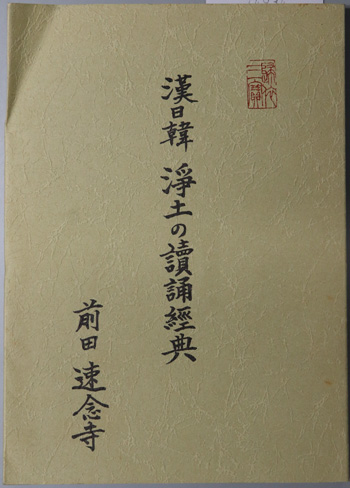 漢日韓 淨土の讀誦經典
前田 速念寺